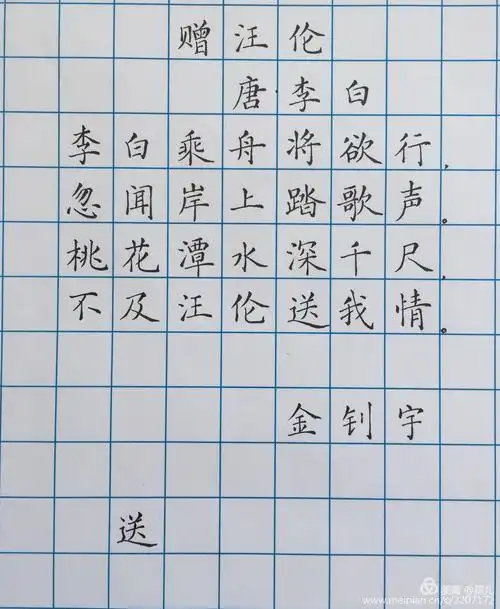 赠汪伦
唐·李白
李白乘舟将欲行，
忽闻岸上踏歌声。
桃花潭水深千尺，
不及汪伦送我情。
金钊宇
送